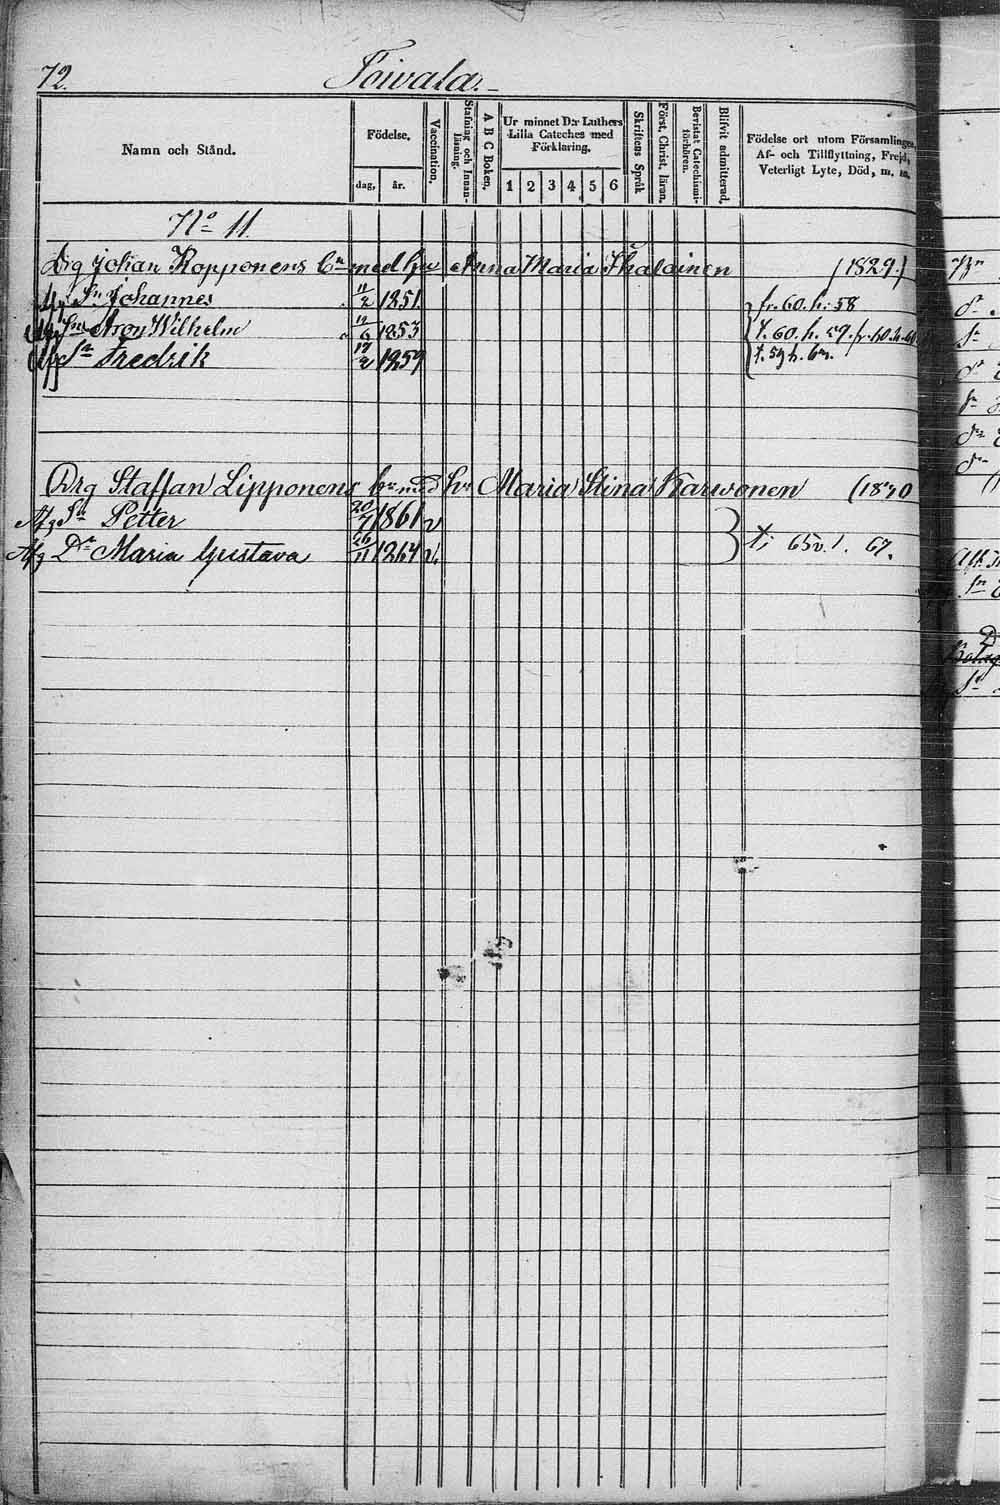 72. Toivala.
Namn och Stånd.
Födelse.
dag, år.
Vaccination.
Stafning och Innan-läsning.
A B C Boken.
Ur minnet D:r Luthers Lilla Cateches med Förklaring.
1 2 3 4 5 6
Skriftens Språk
Först. Christ. läran.
Bevistat Catechismi-förhören.
Blifvit admitterad.
Födelse ort utom Församlingen,
Af- och Tillflyttning, Frejd,
Veterligt Lyte, Död, m. m.
No 11.
Drg Johan Kopponens bn med hu Anna Maria Ihalainen (1829.)
Afg Sn Johannes 11/2 1851. fr. 60. h. 58
Afg Sn Aron Wilhelm 11/6 1853 t. 60. h. 59.
Afg Sn Fredrik 17/2 1859 t. 59 h.
Drg Staffan Lipponens bn med hu Maria Stina Karwonen (1840
Afg Sn Petter 20/7 1861 v
Afg Dr Maria Gustava 26/11 1864 v. t; 65 67.